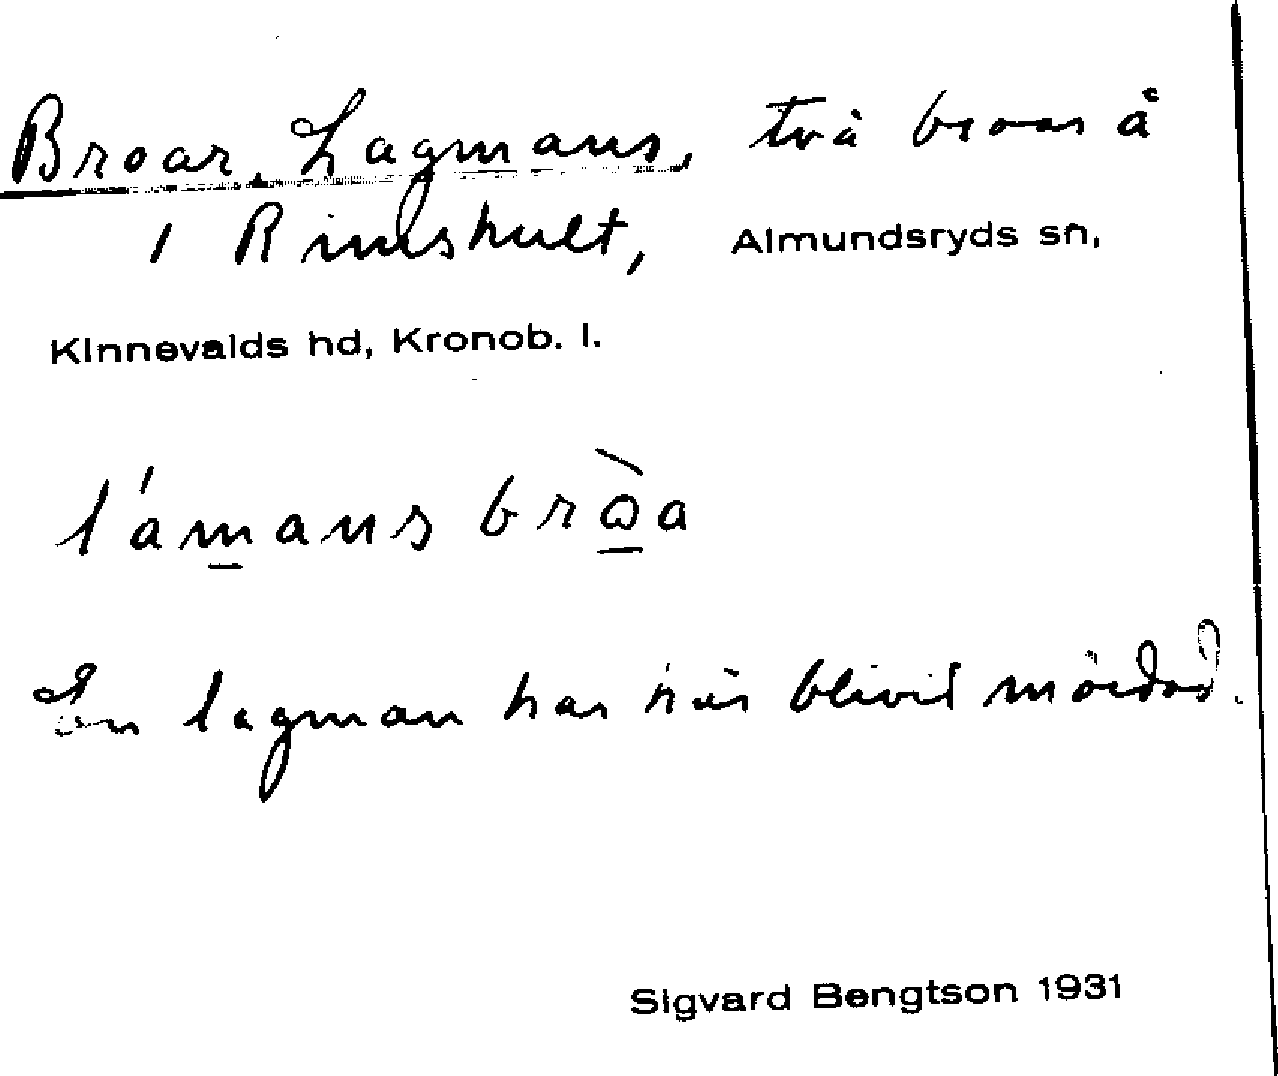 Broar, Lagmans, två broar å
1 Rimshult, Almundsryds sn,
Kinnevalds hd, Kronob. l.
l'amans bròa
En lagman har här blivit mördad.
Sigvard Bengtson 1931